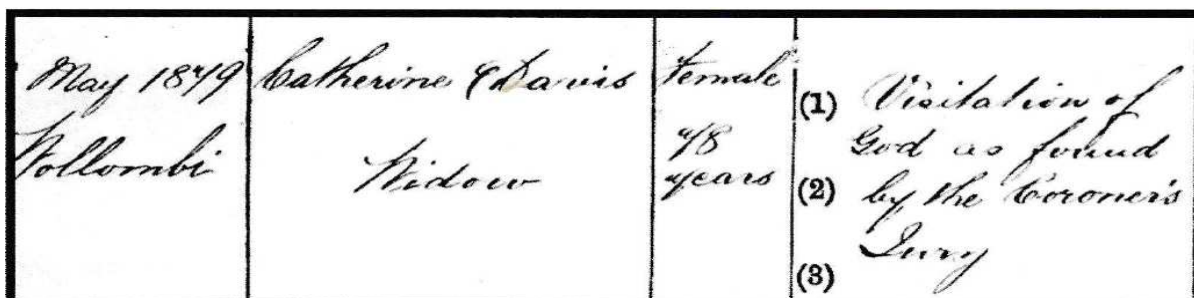 May 1879
Wollombi
Catherine Davis
Widow
Female
78
years
(1) Visitation of
God as found
(2) by the Coroner's
Jury
(3)